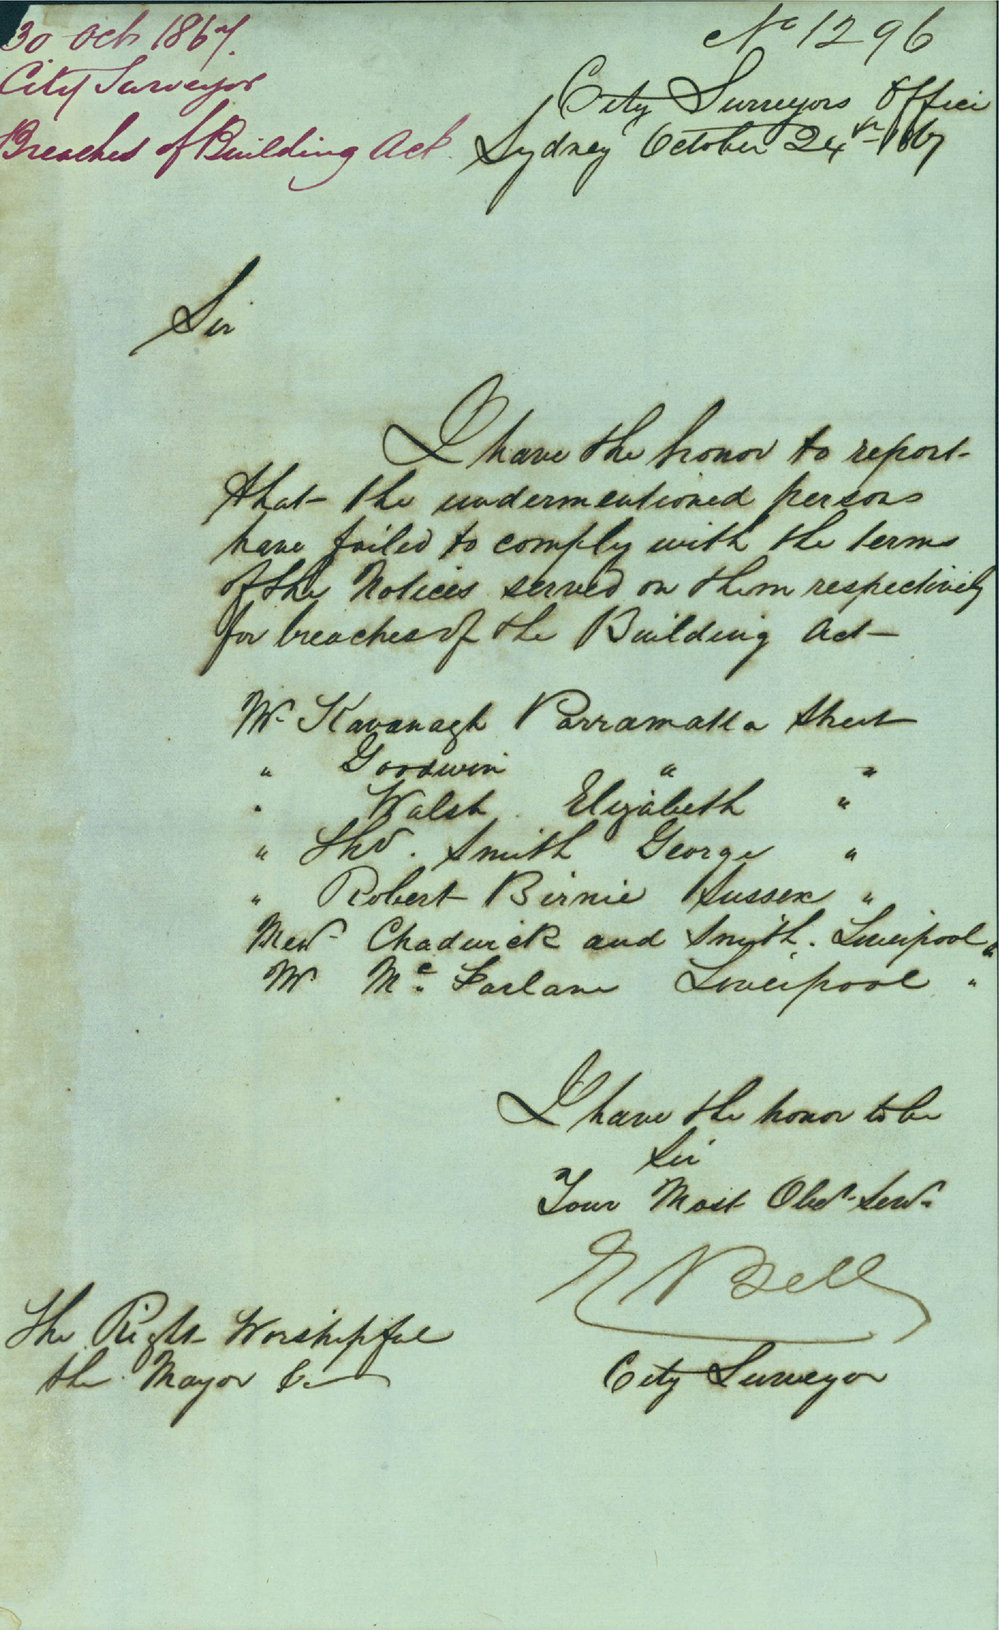 30 Oct 1867.
City Surveyor
Breaches of Building Act.
No 1296
City Surveyors Office
Sydney October 24th 1867
Sir
I have the honor to report
that the undermentioned persons
have failed to comply with the terms
of the Notices served on them respectively
for breaches of the Building Act
Mr Kavanagh Parramatta Street
" Goodwin " "
" Walsh Elizabeth "
" Thos. Smith George "
" Robert Birnie Sussex "
Messrs Chadwick and Smith. Liverpool "
Mr McFarlane Liverpool "
I have the honor to be
Sir
Your Most Obdt Servt
E Bell
City Surveyor
The Right Worshipful
the Mayor &c